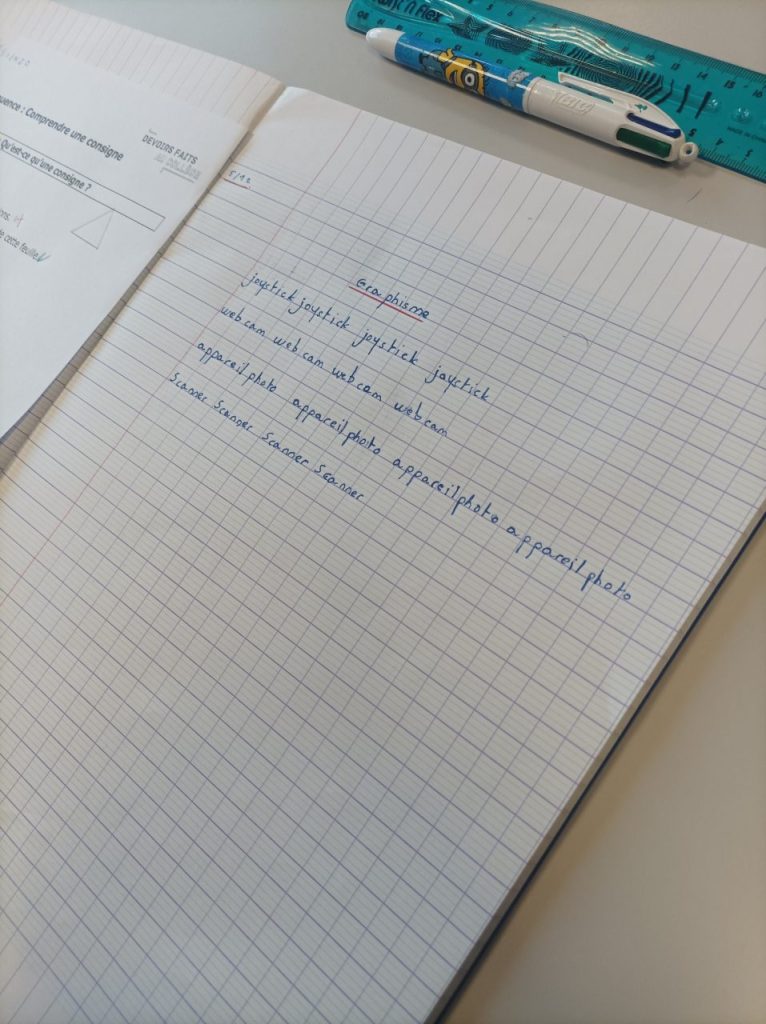 quence : Comprendre une consigne
DEVOIRS FAITS
AU COLLÈGE
Qu'est-ce qu'une consigne ?
ons.
de cette feuille.
5/12
Graphisme
joystick joystick joystick joystick
webcam webcam webcam webcam
appareil photo appareil photo appareil photo appareil photo
Scanner Scanner Scanner Scanner
n Flex
BIC